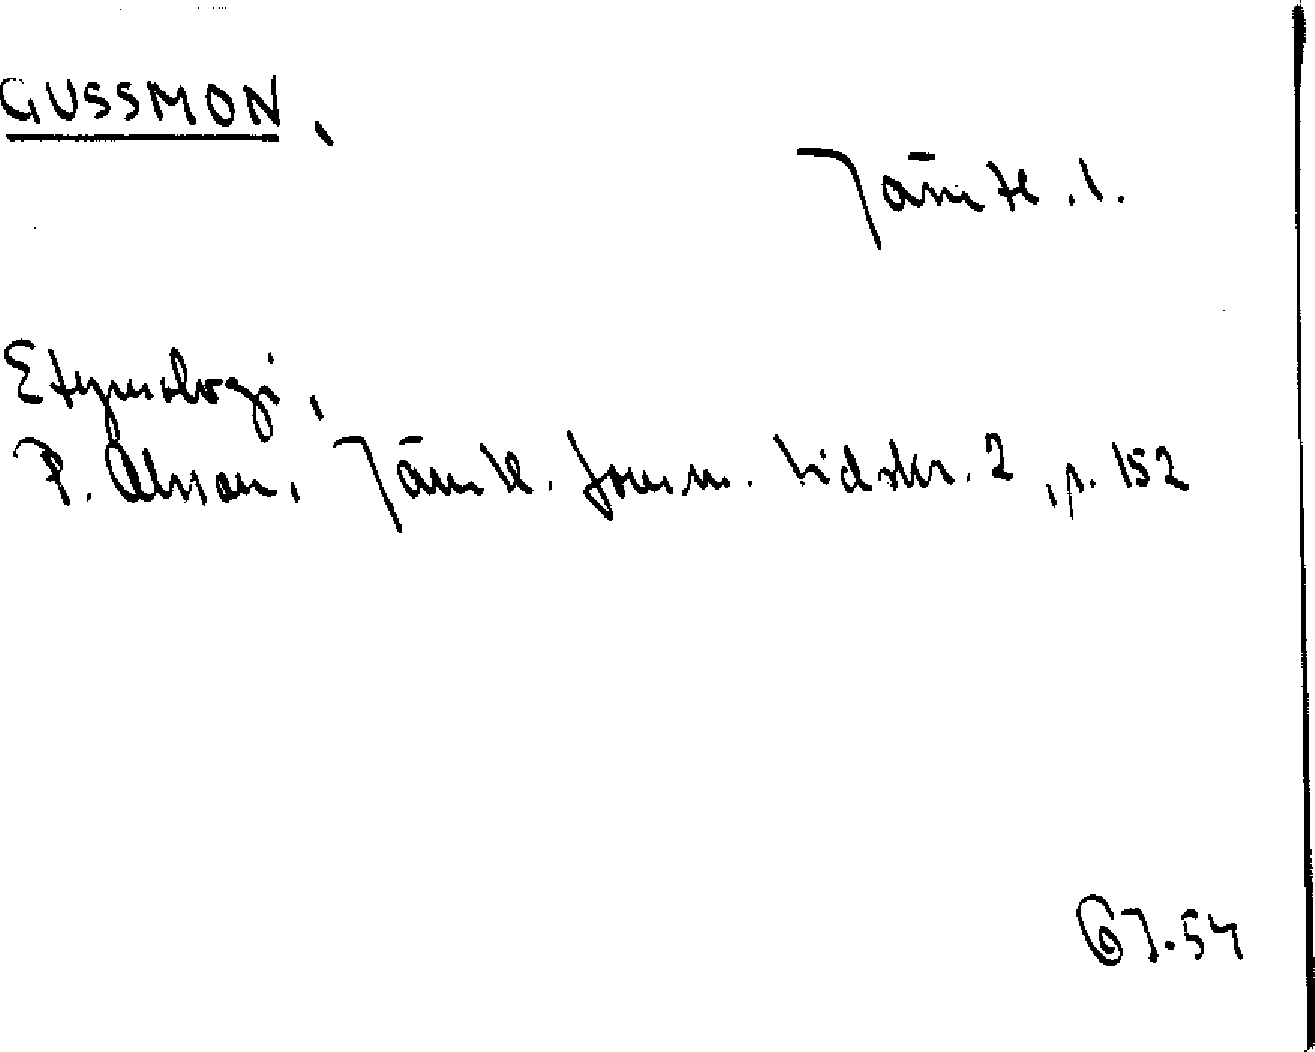 GUSSMON,
Jämtl. l.
Etymologi,
P. Olsson, Jämtl. fornm. tidskr. 2, p. 152
GJ.54